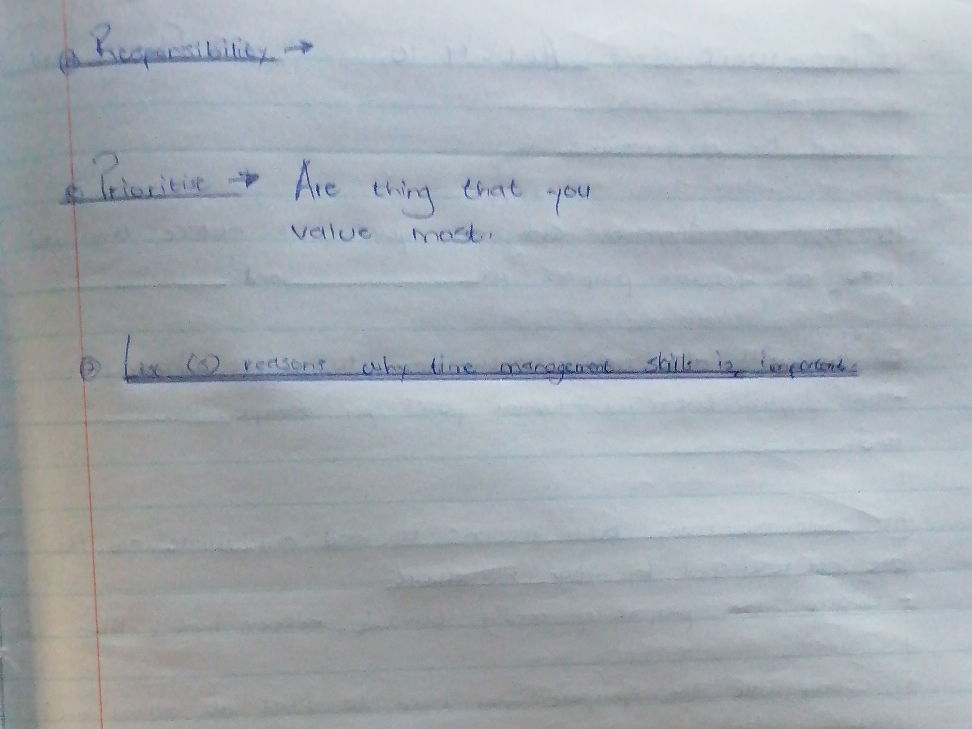 Responsibility →
Prioritise → Are thing that you
value most.
(5) reasons why time management skills is important.